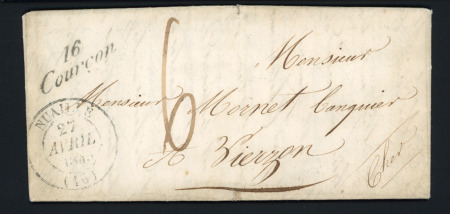 16
Courçon
Monsieur
Monsieur Mornet banquier
6
A Vierzon
Cher
27
AVRIL
(16)